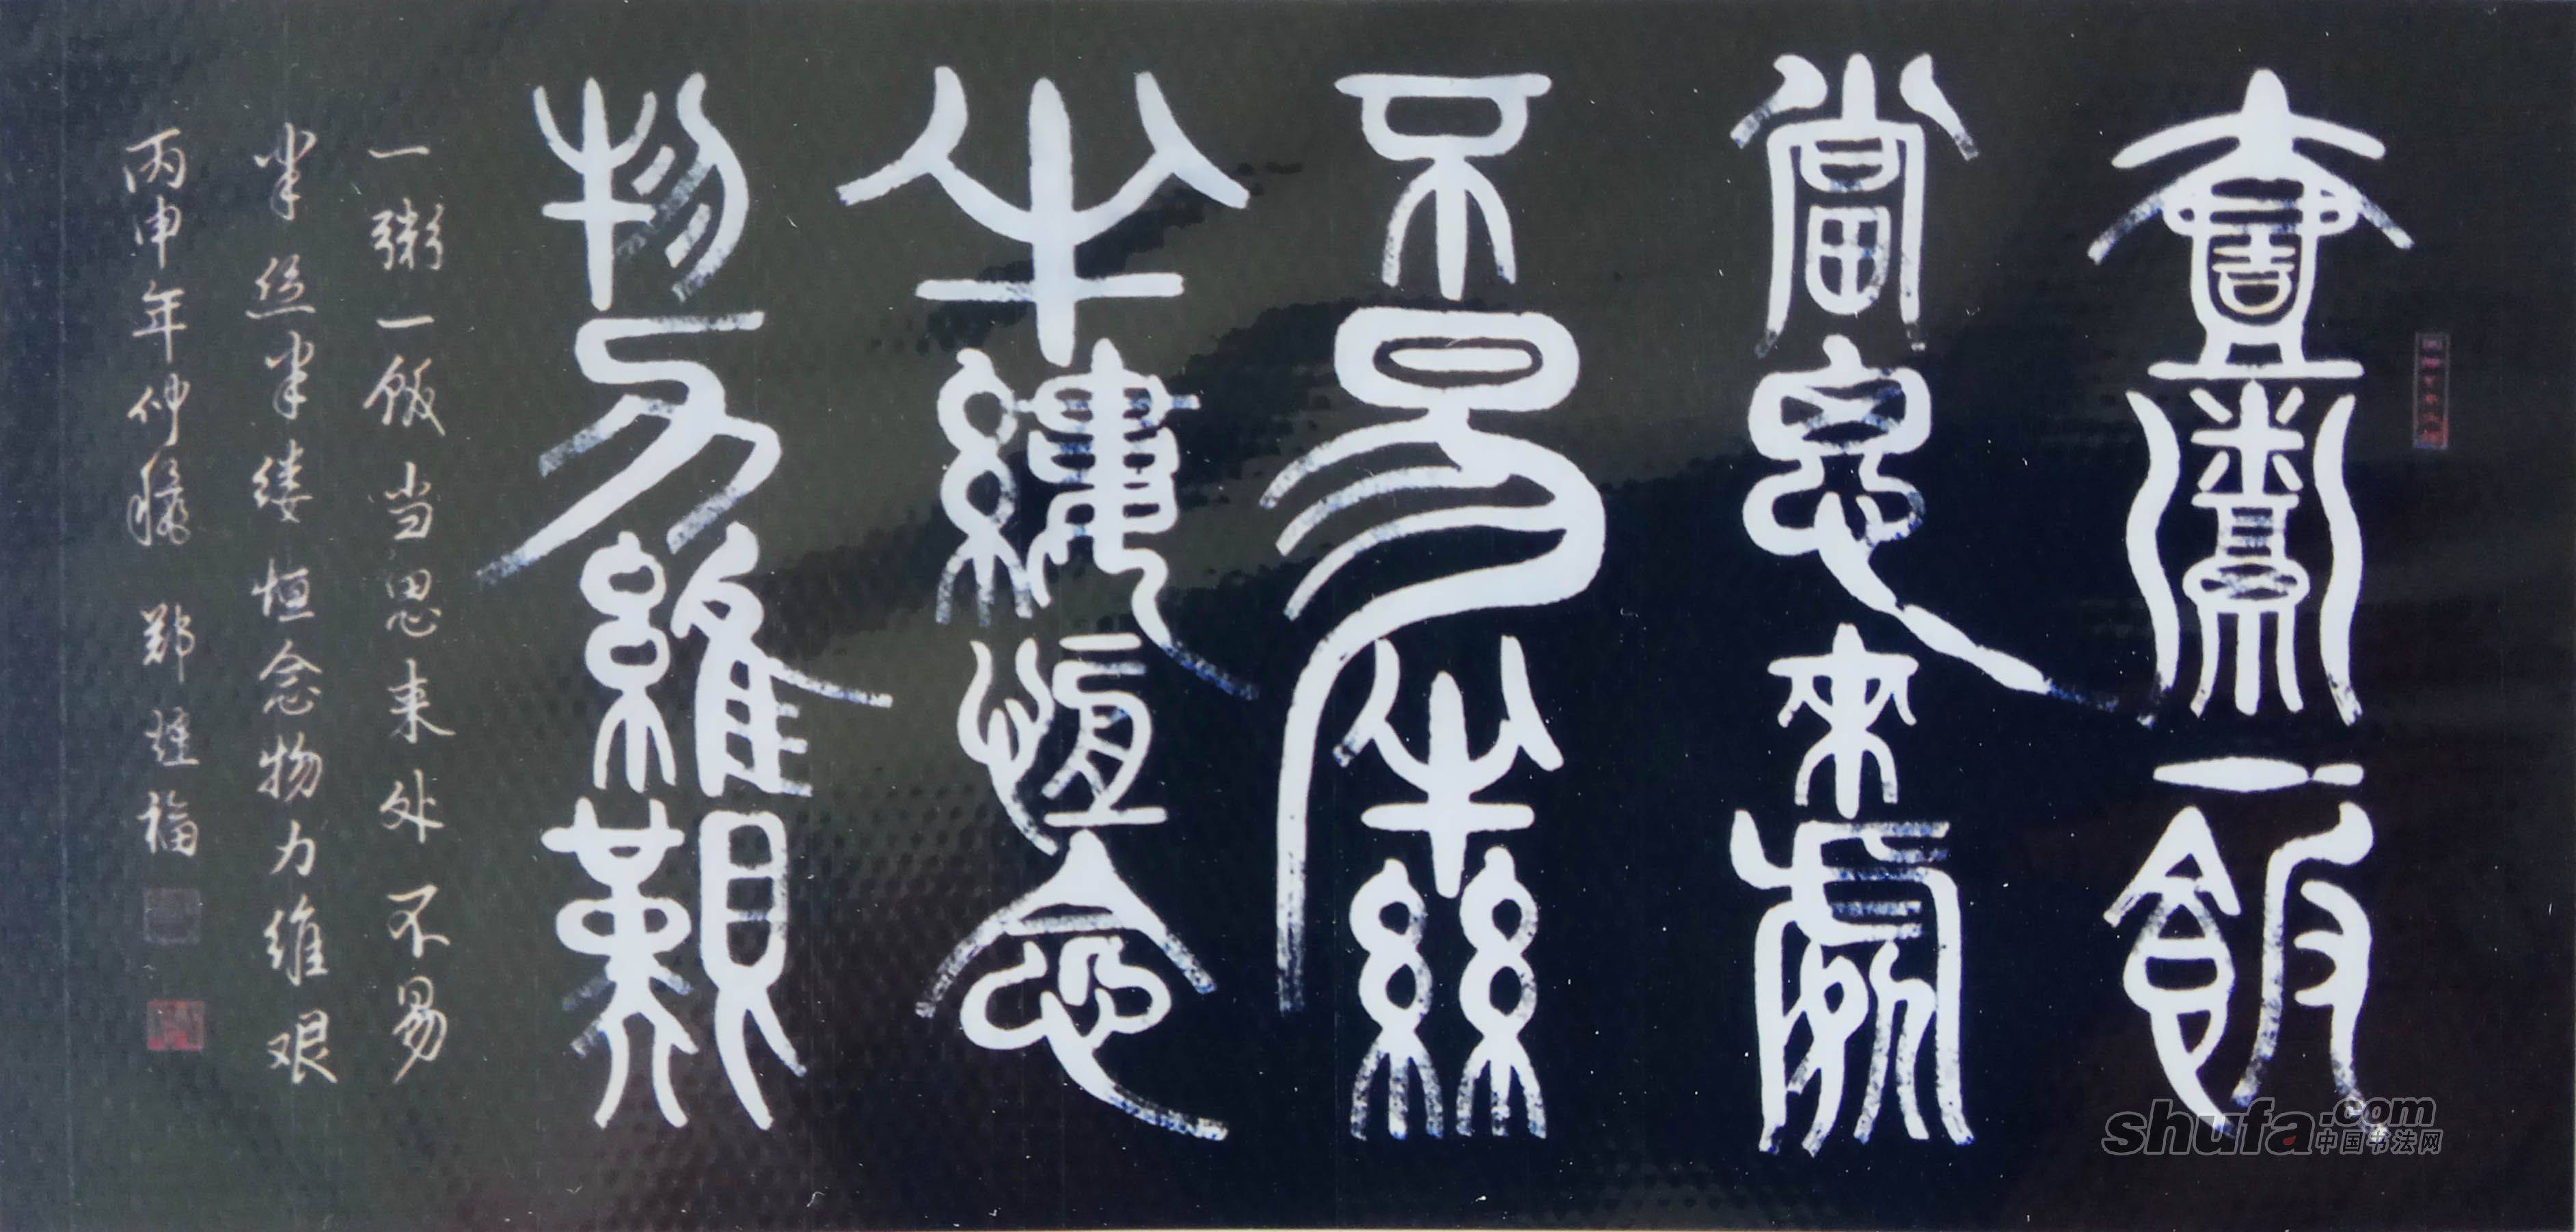 壹鬻一飯
當思來處
不易半絲
半縷恆念
物力維艱
一粥一饭当思来处不易
半丝半缕恒念物力维艰
丙申年仲 郑 福
shufa.com
中国书法网